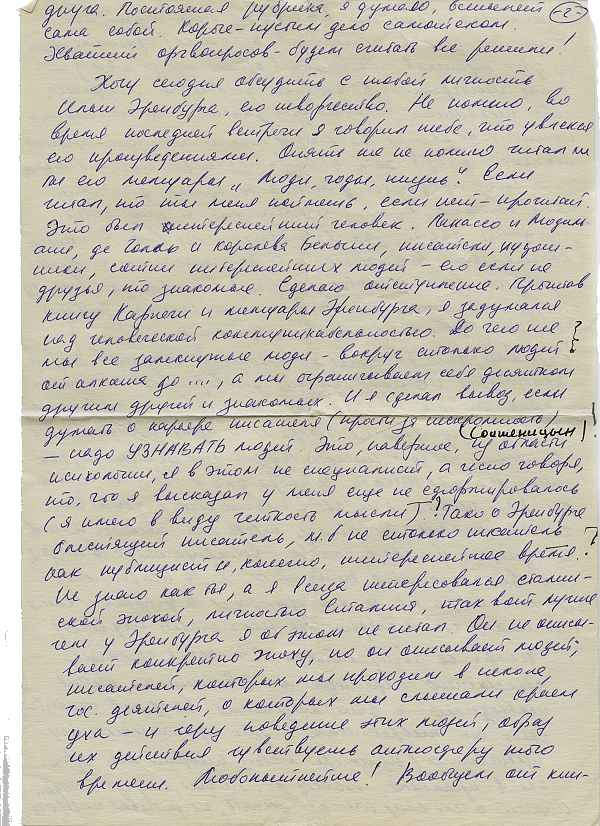 друга. Постоянная рубрика, я думаю, всплывет -2-
сама собой. Короче - пустим дело самотеком.
Хватит оргвопросов - будем считать все решили!
Хочу сегодня обсудить с тобой личность
Ильи Эренбурга, его творчество. Не помню, во
время последней встречи я говорил тебе, что увлекся
его произведениями. Опять же не помню читал ли
ты его мемуары „Люди, годы, жизнь"? Если
читал, то ты меня поймешь, если нет - прочитай.
Это был интереснейший человек. Пикассо и Модиль-
яни, де Голль и королева Бельгии, писатели, худож-
ники, сотни интереснейших людей - его если не
друзья, то знакомые. Сделаю отступление. Прочитав
книгу Карнеги и мемуары Эренбурга, я задумался
над человеческой коммуникабельностью. До чего же
мы все замкнутые люди - вокруг столько людей
от алкаша до ...., а мы ограничиваем себя десятком
другим друзей и знакомых. И я сделал вывод, если
думать о карьере писателя (прости за нескромность)
(Солженицын)!
— надо УЗНАВАТЬ людей. Это, наверное, из области
психологии, я в этом не специалист, а честно говоря,
то, что я высказал у меня еще не сформировалось
(я имею в виду четкость мысли). ? Так о Эренбурге
блестящий писатель, м.б не столько писатель ?
как публицист и, конечно, интереснейшее время.
Не знаю как ты, а я всегда интересовался сталин-
ской эпохой, личностью Сталина, так вот лучше
чем у Эренбурга я об этом не читал. Он не описы-
вает конкретно эпоху, но он описывает людей,
писателей, которых мы проходили в школе,
гос. деятелей, о которых мы слышали краем
уха - и через поведение этих людей, образ
их действия чувствуешь атмосферу того
времени. Любопытнейше! Вообщем от кни-